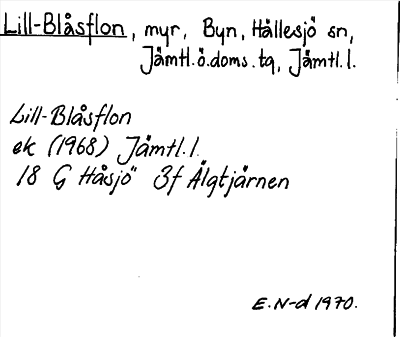 Lill-Blåsflon, myr, Byn, Hällesjö sn,
Jämtl.ö.doms.tg, Jämtl.l.
Lill-Blåsflon
ek (1968) Jämtl.l.
18 G Håsjö" 3f Älgtjärnen
E.N-d 1970.